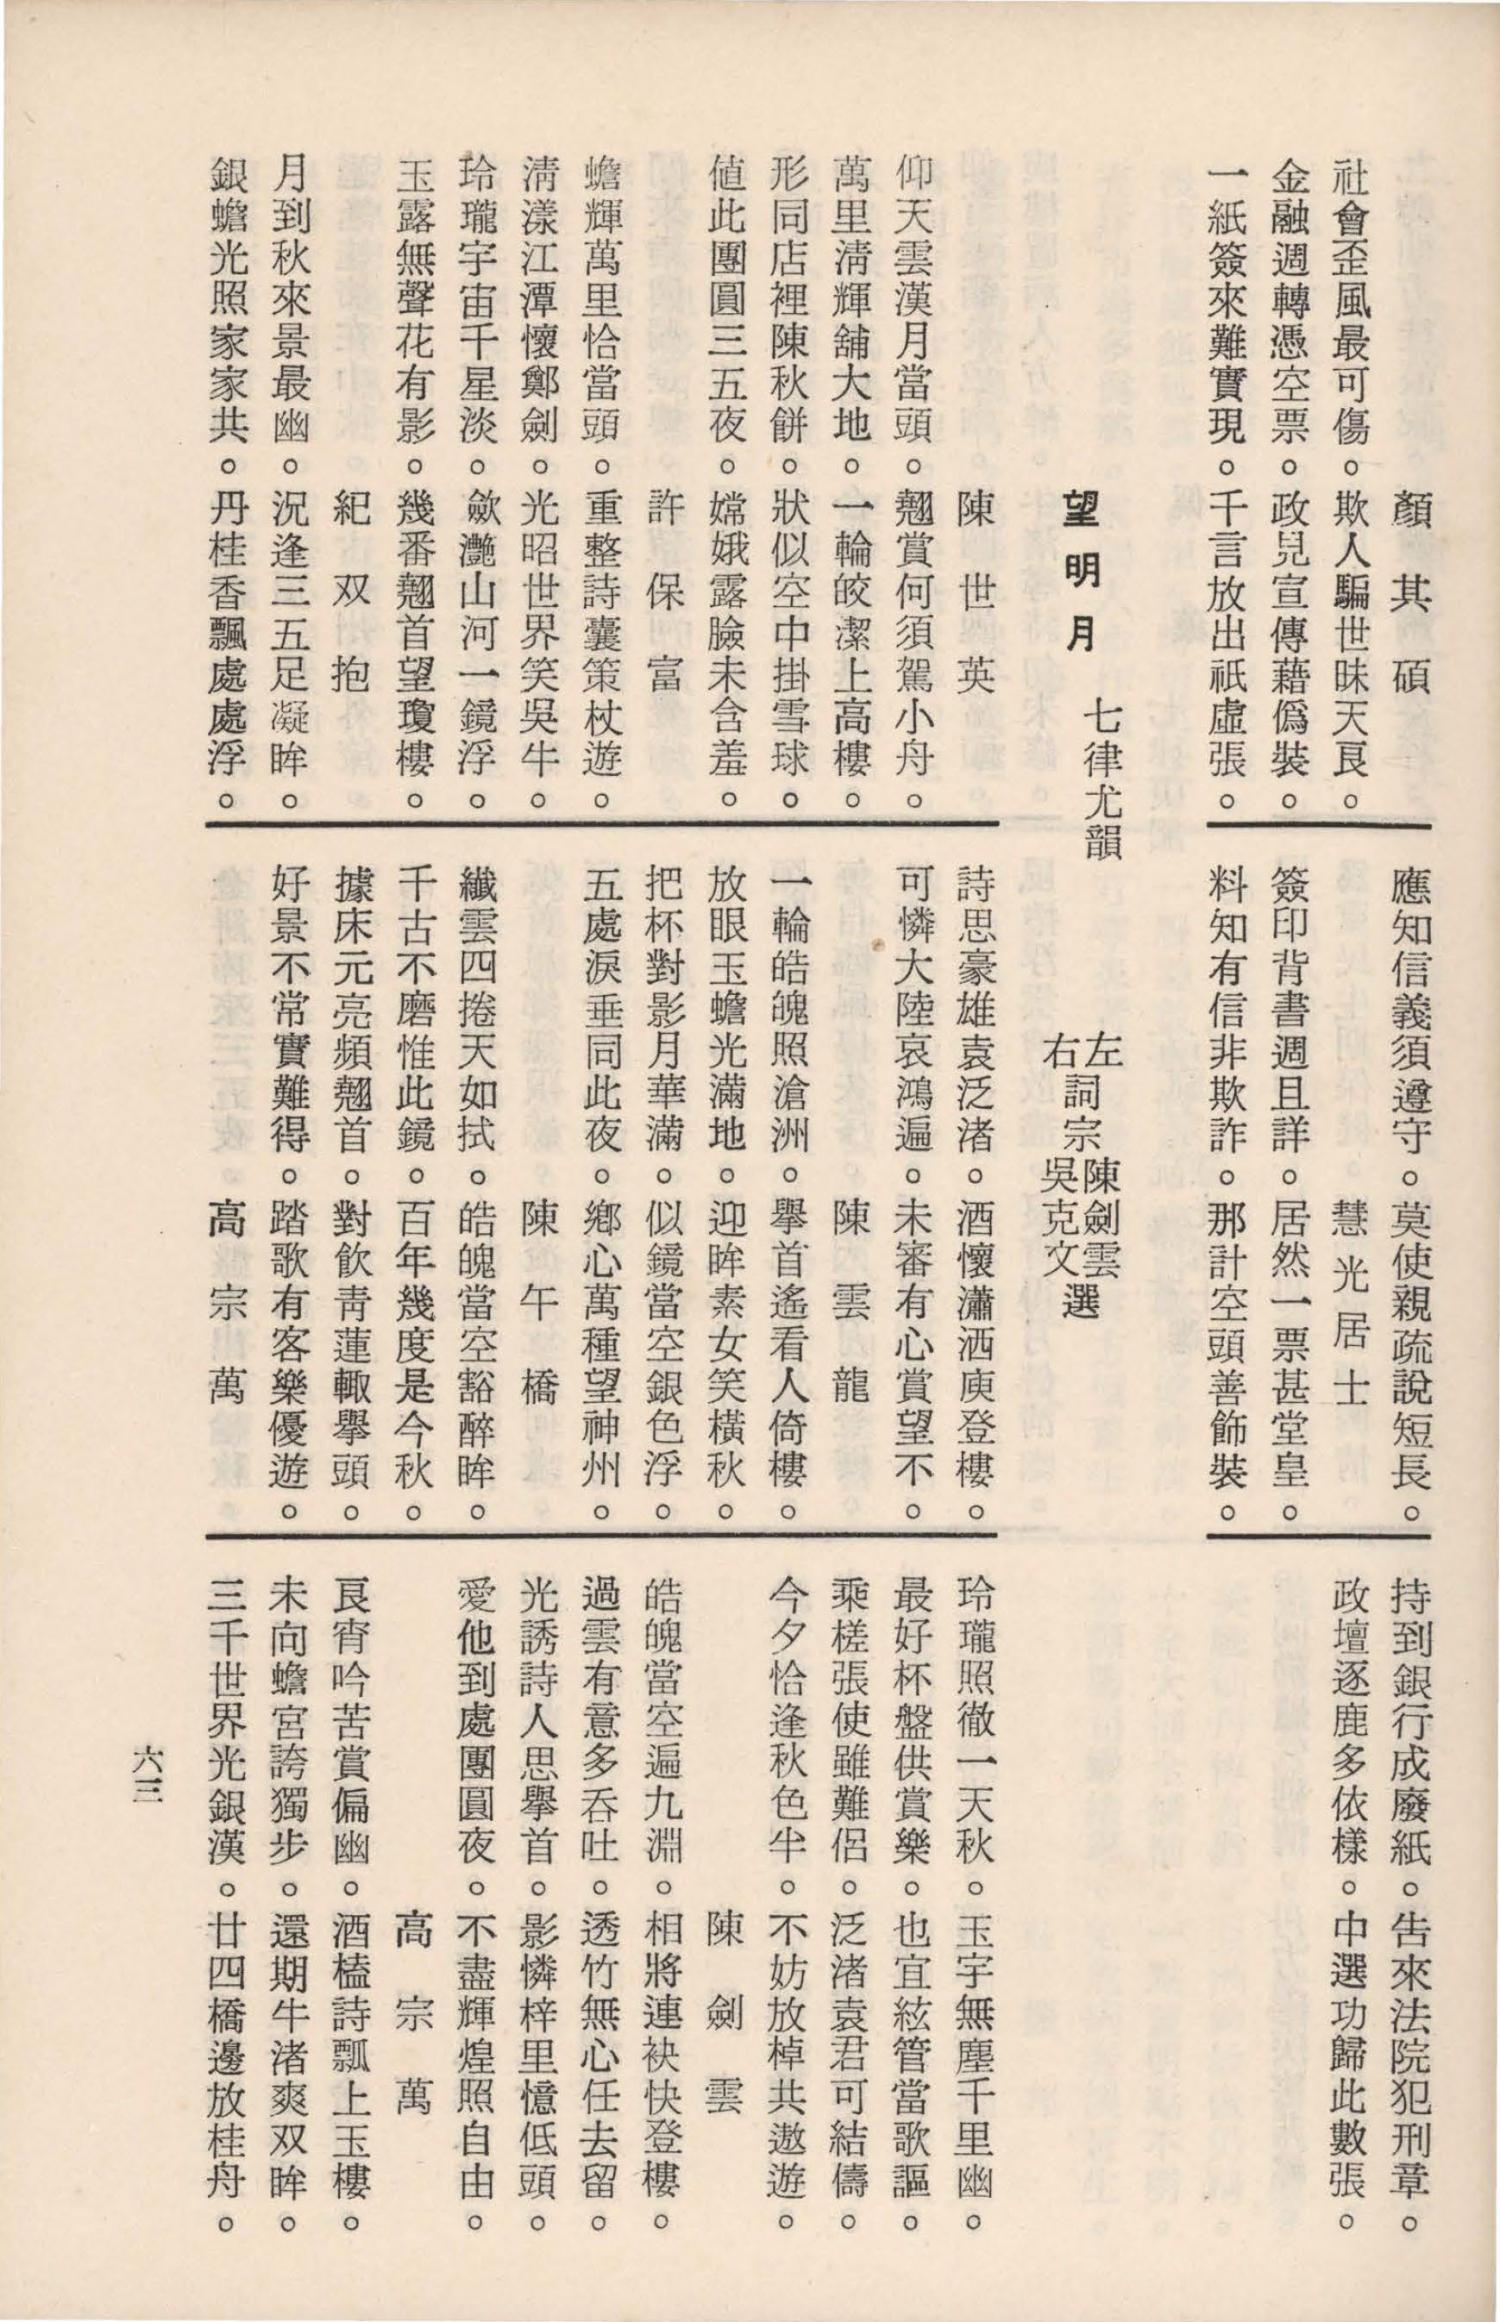 顏其碩
社會歪風最可傷。欺人騙世昧天良。
金融週轉憑空票。政見宣傳藉僞裝。
一紙簽來難實現。千言放出祇虛張。
應知信義須遵守。莫使親疏說短長。
慧光居士
簽印背書週且詳。居然一票甚堂皇。
料知有信非欺詐。那計空頭善飾裝。
持到銀行成廢紙。告來法院犯刑章。
政壇逐鹿多依樣。中選功歸此數張。
望明月 七律尤韻 左右詞宗陳劍雲吳克文選
陳世英
仰天雲漢月當頭。翹賞何須駕小舟。
萬里淸輝舖大地。一輪皎潔上高樓。
形同店裡陳秋餅。狀似空中掛雪球。
値此團圓三五夜。嫦娥露臉未含羞。
許保富
蟾輝萬里恰當頭。重整詩囊策杖遊。
淸漾江潭懷鄭劍。光昭世界笑吳牛。
玲瓏宇宙千星淡。歛灔山河一鏡浮。
玉露無聲花有影。幾番翹首望瓊樓。
紀双抱
月到秋來景最幽。況逢三五足凝眸。
銀蟾光照家家共。丹桂香飄處處浮。
詩思豪雄袁泛渚。酒懷瀟洒庾登樓。
可憐大陸哀鴻遍。未審有心賞望不
陳雲龍
一輪皓魄照滄洲。擧首遙看人倚樓。
放眼玉蟾光滿地。迎眸素女笑橫秋。
把杯對影月華滿。似鏡當空銀色浮。
五處淚垂同此夜。鄉心萬種望神州。
陳午橋
纖雲四捲天如拭。皓魄當空豁醉眸。
千古不磨惟此鏡。百年幾度是今秋。
據床元亮頻翹首。對飮靑蓮輙擧頭。
好景不常實難得。踏歌有客樂優遊。
高宗萬
玲瓏照徹一天秋。玉宇無塵千里幽。
最好杯盤供賞樂。也宜絃管當歌謳。
乘槎張使雖難侶。泛渚袁君可結儔。
今夕恰逢秋色半。不妨放棹共遨遊。
陳劍雲
皓魄當空遍九淵。相將連袂快登樓。
過雲有意多吞吐。透竹無心任去留。
光誘詩人思擧首。影憐梓里憶低頭。
愛他到處團圓夜。不盡輝煌照自由。
高宗萬
良宵吟苦賞偏幽。酒榼詩瓢上玉樓。
未向蟾宮誇獨步。還期牛渚爽双眸。
三千世界光銀漢。廿四橋邊放桂舟。
六三